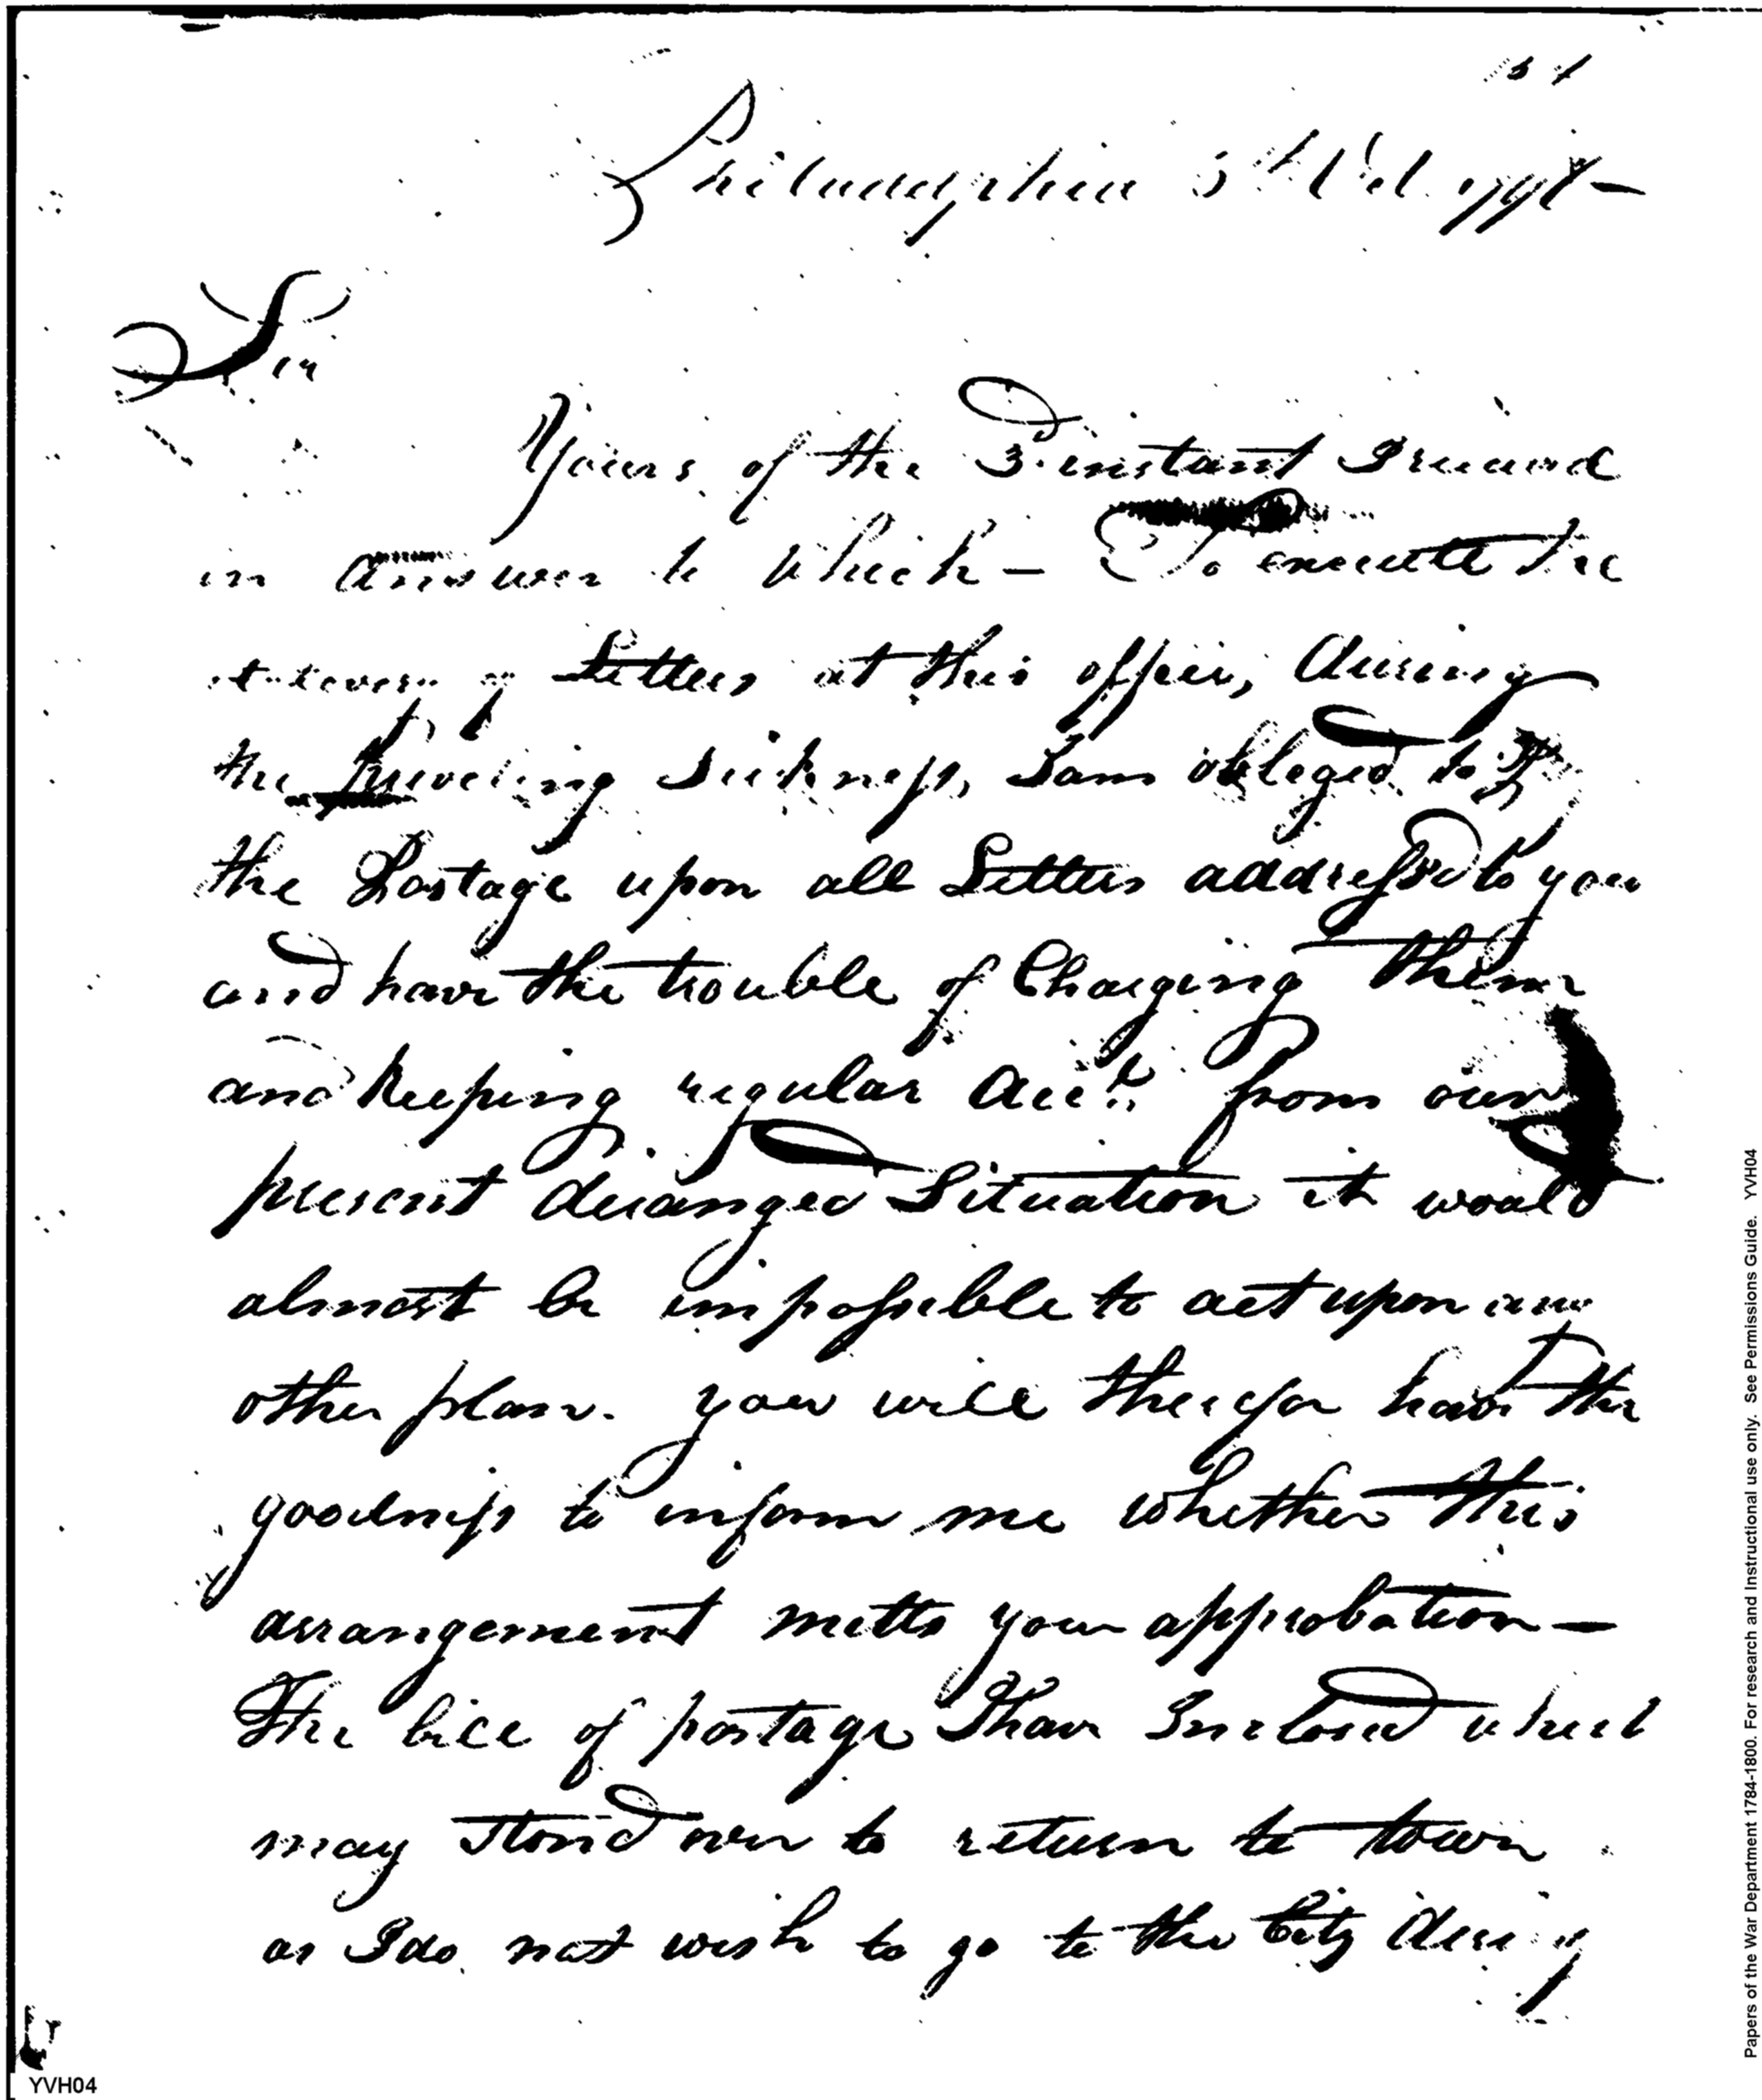 Philadelphia 5th Oct. 1798 —
Sir
Yours of the 3d instant I received
in answer to which — To execute the
delivery of Letters at this office, during
the prevailing Sickness, I am obleged to
the Postage upon all Letters addressed to you
and have the trouble of Charging them
and keeping regular Accts. from our
present deranged Situation it would
almost be impossible to act upon any
other plan. you will therefor have the
goodness to inform me whether this
arrangement meets your approbation —
The bill of postage I have Inclosed which
may stand over to return to town
as I do not wish to go to the City during
YVH04
Papers of the War Department 1784-1800. For research and Instructional use only. See Permissions Guide. YVH04